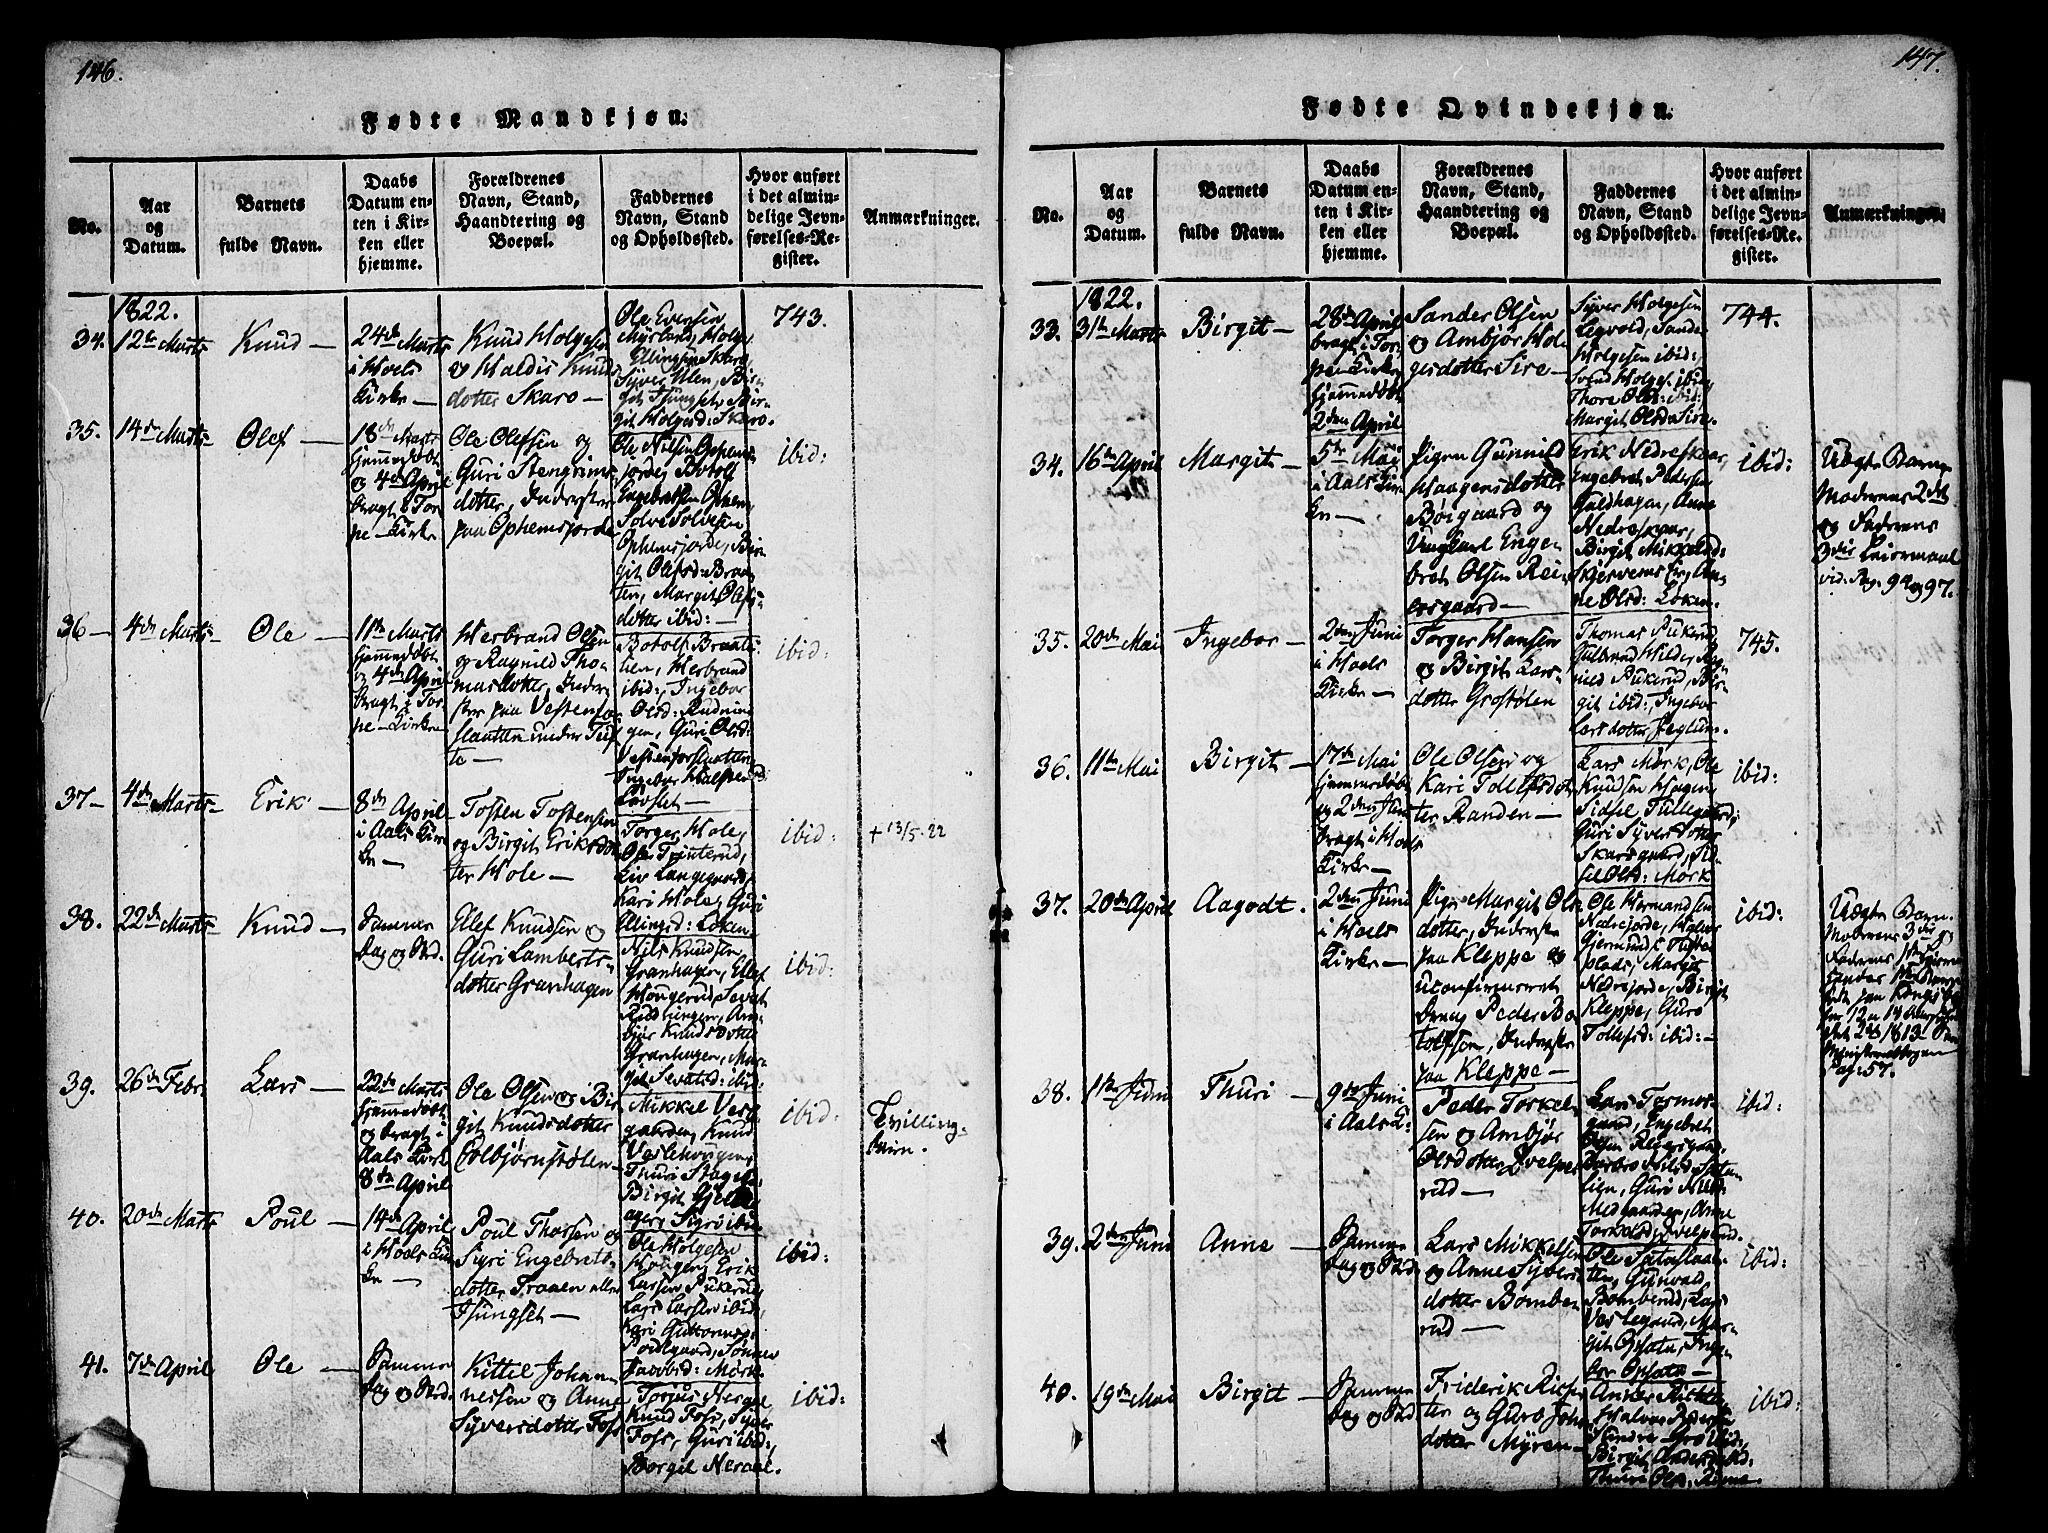 146.
Fødte Mandkjøn.
No.
Aar
og
Datum.
Barnets
fulde Navn.
Daabs
Datum en-
ten i Kir-
ken eller
hjemme.
Forældrenes
Navn, Stand,
Haandtering og
Boepæl.
Faddernes
Navn, Stand
og Opholdssted.
Hvor anført
i det almin-
delige Jevn-
førelses-Re-
gister.
Anmærkninger.
1822.
34.
12te Marts
Knud —
24de Marts
i Hoels
Kirke —
Knud Holgesen
og Haldis Knuds
dotter Skaro —
Ole Evensen
Myrland, Holge
Ellingsen Skaro,
Syver Ulen, Bir-
git Tjungset, Bir-
git Holgesd: Skaro.
743.
35.
14de Marts
Olef —
18de Marts
hjemmedøbt
og 4de April
bragt i Tor-
pe Kirke
Ole Olefsen og
Guri Stengrims
dotter, Inderster
paa Ophemsjorde
Ole Nilsen Ophems
jorde, Botolf
Engebretsen Ophem,
Solve Solvesen
Ophemsjorde, Bir-
git Olefsd: Braa-
ten, Margit Olefs-
dotter ibid: —
ibid:
36 —
4de Marts
Ole —
11te Marts
hjemmedøbt
og 4de April
bragt i Tor-
pe Kirke
Herbrand Olsen
og Ragnild Tho-
masdotter, Inder-
ster paa Vestenfor
slaatten under Tuf-
te —
Botolf Braaten
ien, Herbrand
ibid:, Ingebor
Olsd: Rudnin-
gen, Guri Olsd:
Vestenforslaatten
Ingebor Halsten
Løvslet —
ibid:
37 —
4de Marts
Erik —
8de April
i Aals Kir
ke —
Tosten Tostensen
og Birgit Eriksdot-
ter Hole —
Torger Hole,
Ole Trinterud,
Liv Langegaard,
Kari Hole, Guri
Ellingsd: Løken
ibid:
+ 13/5-22
38.
22de Marts
Knud —
Samme
Dag og Sted.
Ellef Knudsen og
Guri Lamberts-
dotter Granhagen
Nils Knudsen
Granhagen, Ellef
Hougerud, Sevat
Rudningen, Am-
bjør Knudsdotter
Granhagen, Mar-
git Sevatsd: ibid:
ibid:
39.
26de Febr.
Lars —
22de Marts
hjemmedøbt
og bragt i
Aals Kirke
8de April
Ole Olsen og Bir
git Knudsdotter
Colbjørnstølen —
Mikkel Ves-
gaarden, Knud
Veslehougen
Thuri
Birgit
Sigri ibid:
ibid:
Tvilling-
barn.
40.
20de Marts
Poul —
14de April
i Hoels Kir
ke —
Poul Thorsen og
Sigri Engebrets-
dotter Traaen eller
Tjungset —
Ole Holgesen
Hougen, Erik
Larsen Pukerud,
Lars Larsen ibid:
Kari Guttormsd.
ibid:
41.
7de April
Ole —
Samme
Dag og Sted.
Kittel Johan-
nessen og Anne
Syversdotter Foss
Torgus Nerael
Knud Foss, Syver
Foss, Guri ibid:,
Borgil Nerael.
ibid:
147.
Fødte Qvindekjøn.
No.
Aar
og
Datum.
Barnets
fulde Navn.
Daabs
Datum en-
ten i Kir-
ken eller
hjemme.
Forældrenes
Navn, Stand,
Haandtering og
Boepæl.
Faddernes
Navn, Stand
og Opholdssted.
Hvor anført
i det almin-
delige Jevn-
førelses-Re-
gister.
Anmærkninger.
1822.
33.
31te Marts
Birgit —
28de April
bragt i Tor-
pe Kirke
hjemmedøbt
2den April
Sander Olsen
og Ambjør Hol-
gesdotter Sire —
Syver Holgesen
Legvold, Sander
Holgesen ibid:,
Svend Holges. ibid:
Thore Olsd: ibid:
Margit Olsd: Sire.
744.
34.
16de April
Margit —
5te Mai
i Aals Kir
ke —
Pigen Gunnild
Haagensdotter
Børgaard og
Ungkarl Enge-
bret Olsen Rei-
ersgaard —
Erik Nedreskaar,
Engebret Pedersen
Guldhagen, Anne
Nedreskaar,
Birgit Mikkelsd:
An-
ne Olsd: Løken.
ibid:
Uægte Barn.
Moderens 2det
og Faderens
3die Leiermaal
vid: Pag: 94 og 97.
35.
20de Mai
Ingebor —
2den Juni
i Hoels
Kirke —
Torger Hansen
og Birgit Lars-
dotter Grøstølen
Thomas Pukerud,
Gulbrand Hilde, Rag-
nild Pukerud, Bir-
git ibid:, Ingebor
Larsdotter Jeglum.
745.
36.
11te Mai
Birgit —
17de Mai
hjemmedøbt
og 2den Juni
bragt i Hoels
Kirke —
Ole Olsen og
Kari Tollefsdot-
ter Randen —
Lars Mørk, Ole
Knudsen Hougen,
Sidsel Tullegaard,
Guri Syversdotter
Skarsgaard, Sid-
sel Olsd: Mørk
ibid:
37.
20de April
Aagodt.
2den Juni
i Hoels
Kirke —
Pige Margit Ols-
dotter, Inderste
paa Kleppe og
uconfirmeret
Dreng Peder Bo-
tolfsen, Inderste
paa Kleppe —
Ole Hermandsen
Nedrejorde, Holger
Gjermunds. Tufte-
plads, Margit
Nedrejorde, Birgit
Kleppe, Guro
Tollefsd: ibid: —
ibid:
Uægte Barn.
Moderens 3die og
Faderens 1ste
Pag: 57.
38.
1ste Juni
Thuri —
9de Juni
i Aals K:
Peder Torkel-
sen og Ambjør
Olsdotter Qvelpe
rud —
Lars Tormos-
gaard, Engebret
Olsen Reiersgaard,
Barbro Nilsd:
lien, Guri Nils-
Medgaarden, Anne
Torkelsd: Qvelperud.
ibid:
39.
2den Juni
Anne —
Samme
Dag og Sted
Lars Mikkelsen
og Anne Syvers-
dotter Bømbe-
rud —
Ole Satuslaa-
ten, Gunvald
Bømberud, Lars
Veslegard, Mar-
git Opsata, Inge-
bor Opsata —
ibid:
40.
19de Mai
Birgit —
Samme
Dag og Sted
Friderik Rich-
ter og Guro Johs
dotter Myren —
Anders Richter,
Halvor Pedersen
Søndre-Gro ibid:,
Birgit Andersd:
Thuri Ols.
ibid: